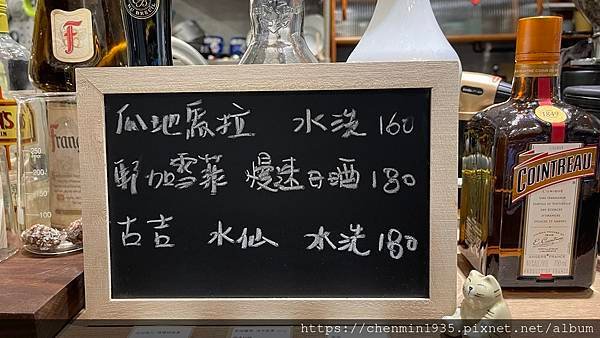 瓜地馬拉 水洗 160
耶加雪菲 慢速日晒 180
古吉 水仙 水洗 180
F
Frang
250
100
1849
COINTREAU
L'UNIQUE
ANGERS FRANCE
https://chenmin1935.pixnet.net/album